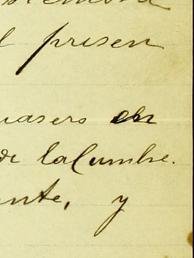 l presen
uasero en
de la Cumbre.
nte, y